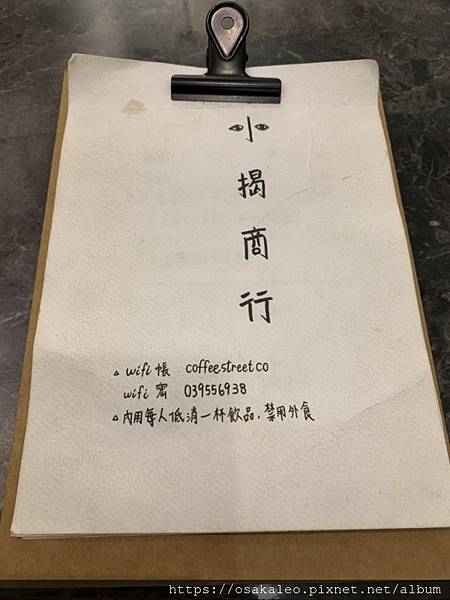 小揭商行
△ wifi 帳 coffeestreetco
wifi 密 039556938
△ 內用每人低消一杯飲品，禁用外食
https://osakaleo.pixnet.net/album